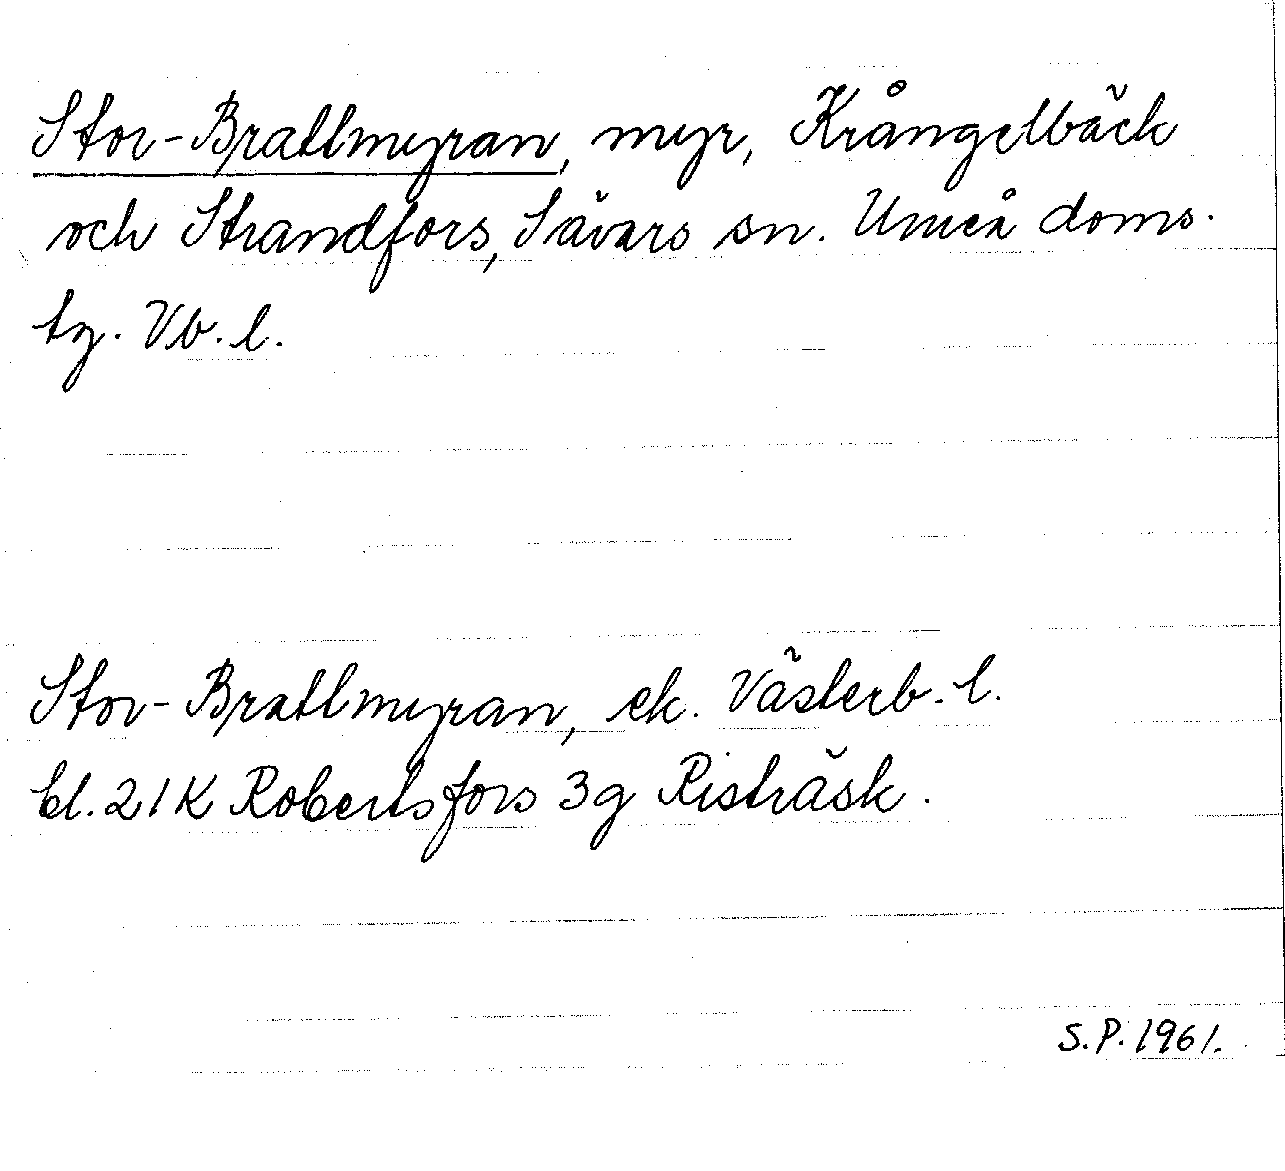 Stor-Brattmyran, myr, Krångelbäck
och Strandfors, Sävars sn. Umeå doms.
tg. Vb. l.
Stor-Brattmyran, ek. Västerb. l.
bl. 21K Robertsfors 3g Risträsk.
S.P. 1961.